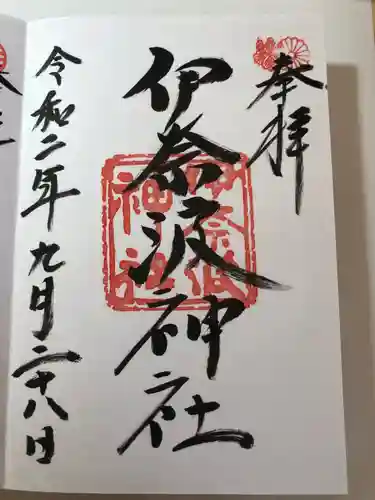 奉拝
伊奈波神社
伊奈波神社
令和二年九月二十八日